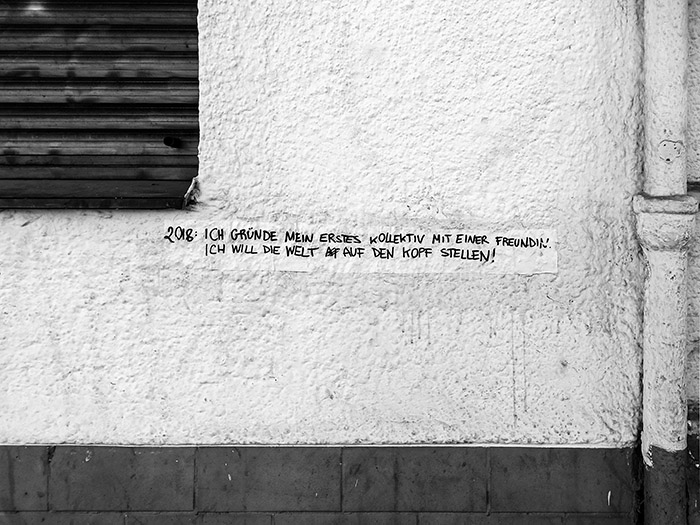 2018: ICH GRÜNDE MEIN ERSTES KOLLEKTIV MIT EINER FREUNDIN.
ICH WILL DIE WELT AUF DEN KOPF STELLEN!